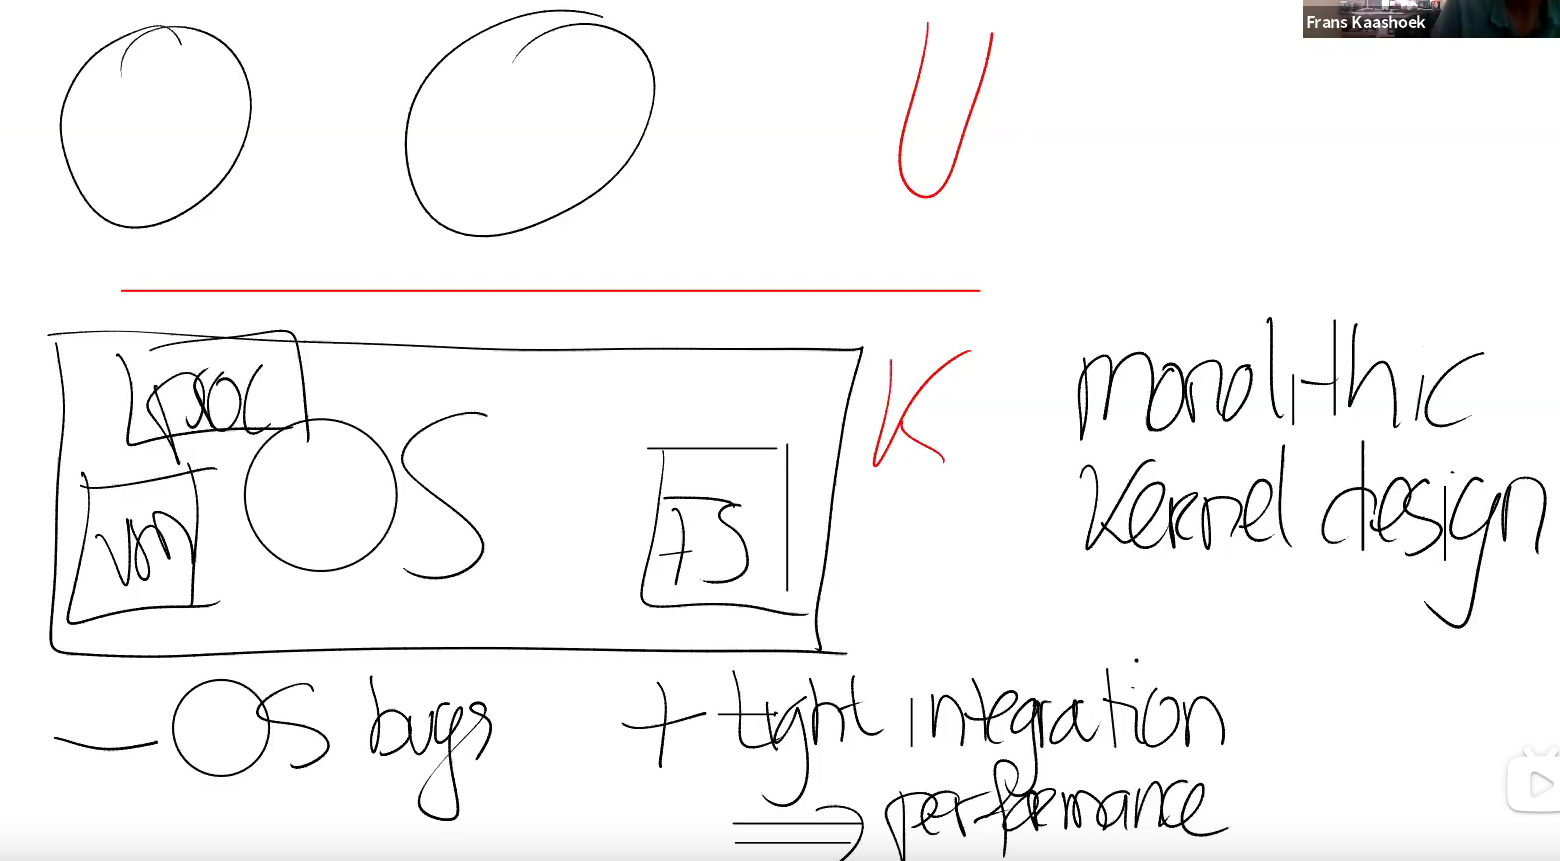 Frans Kaashoek
U
K
proc
OS
vm
FS
monolithic
kernel design
– OS bugs
+ tight integration
⇒ performance